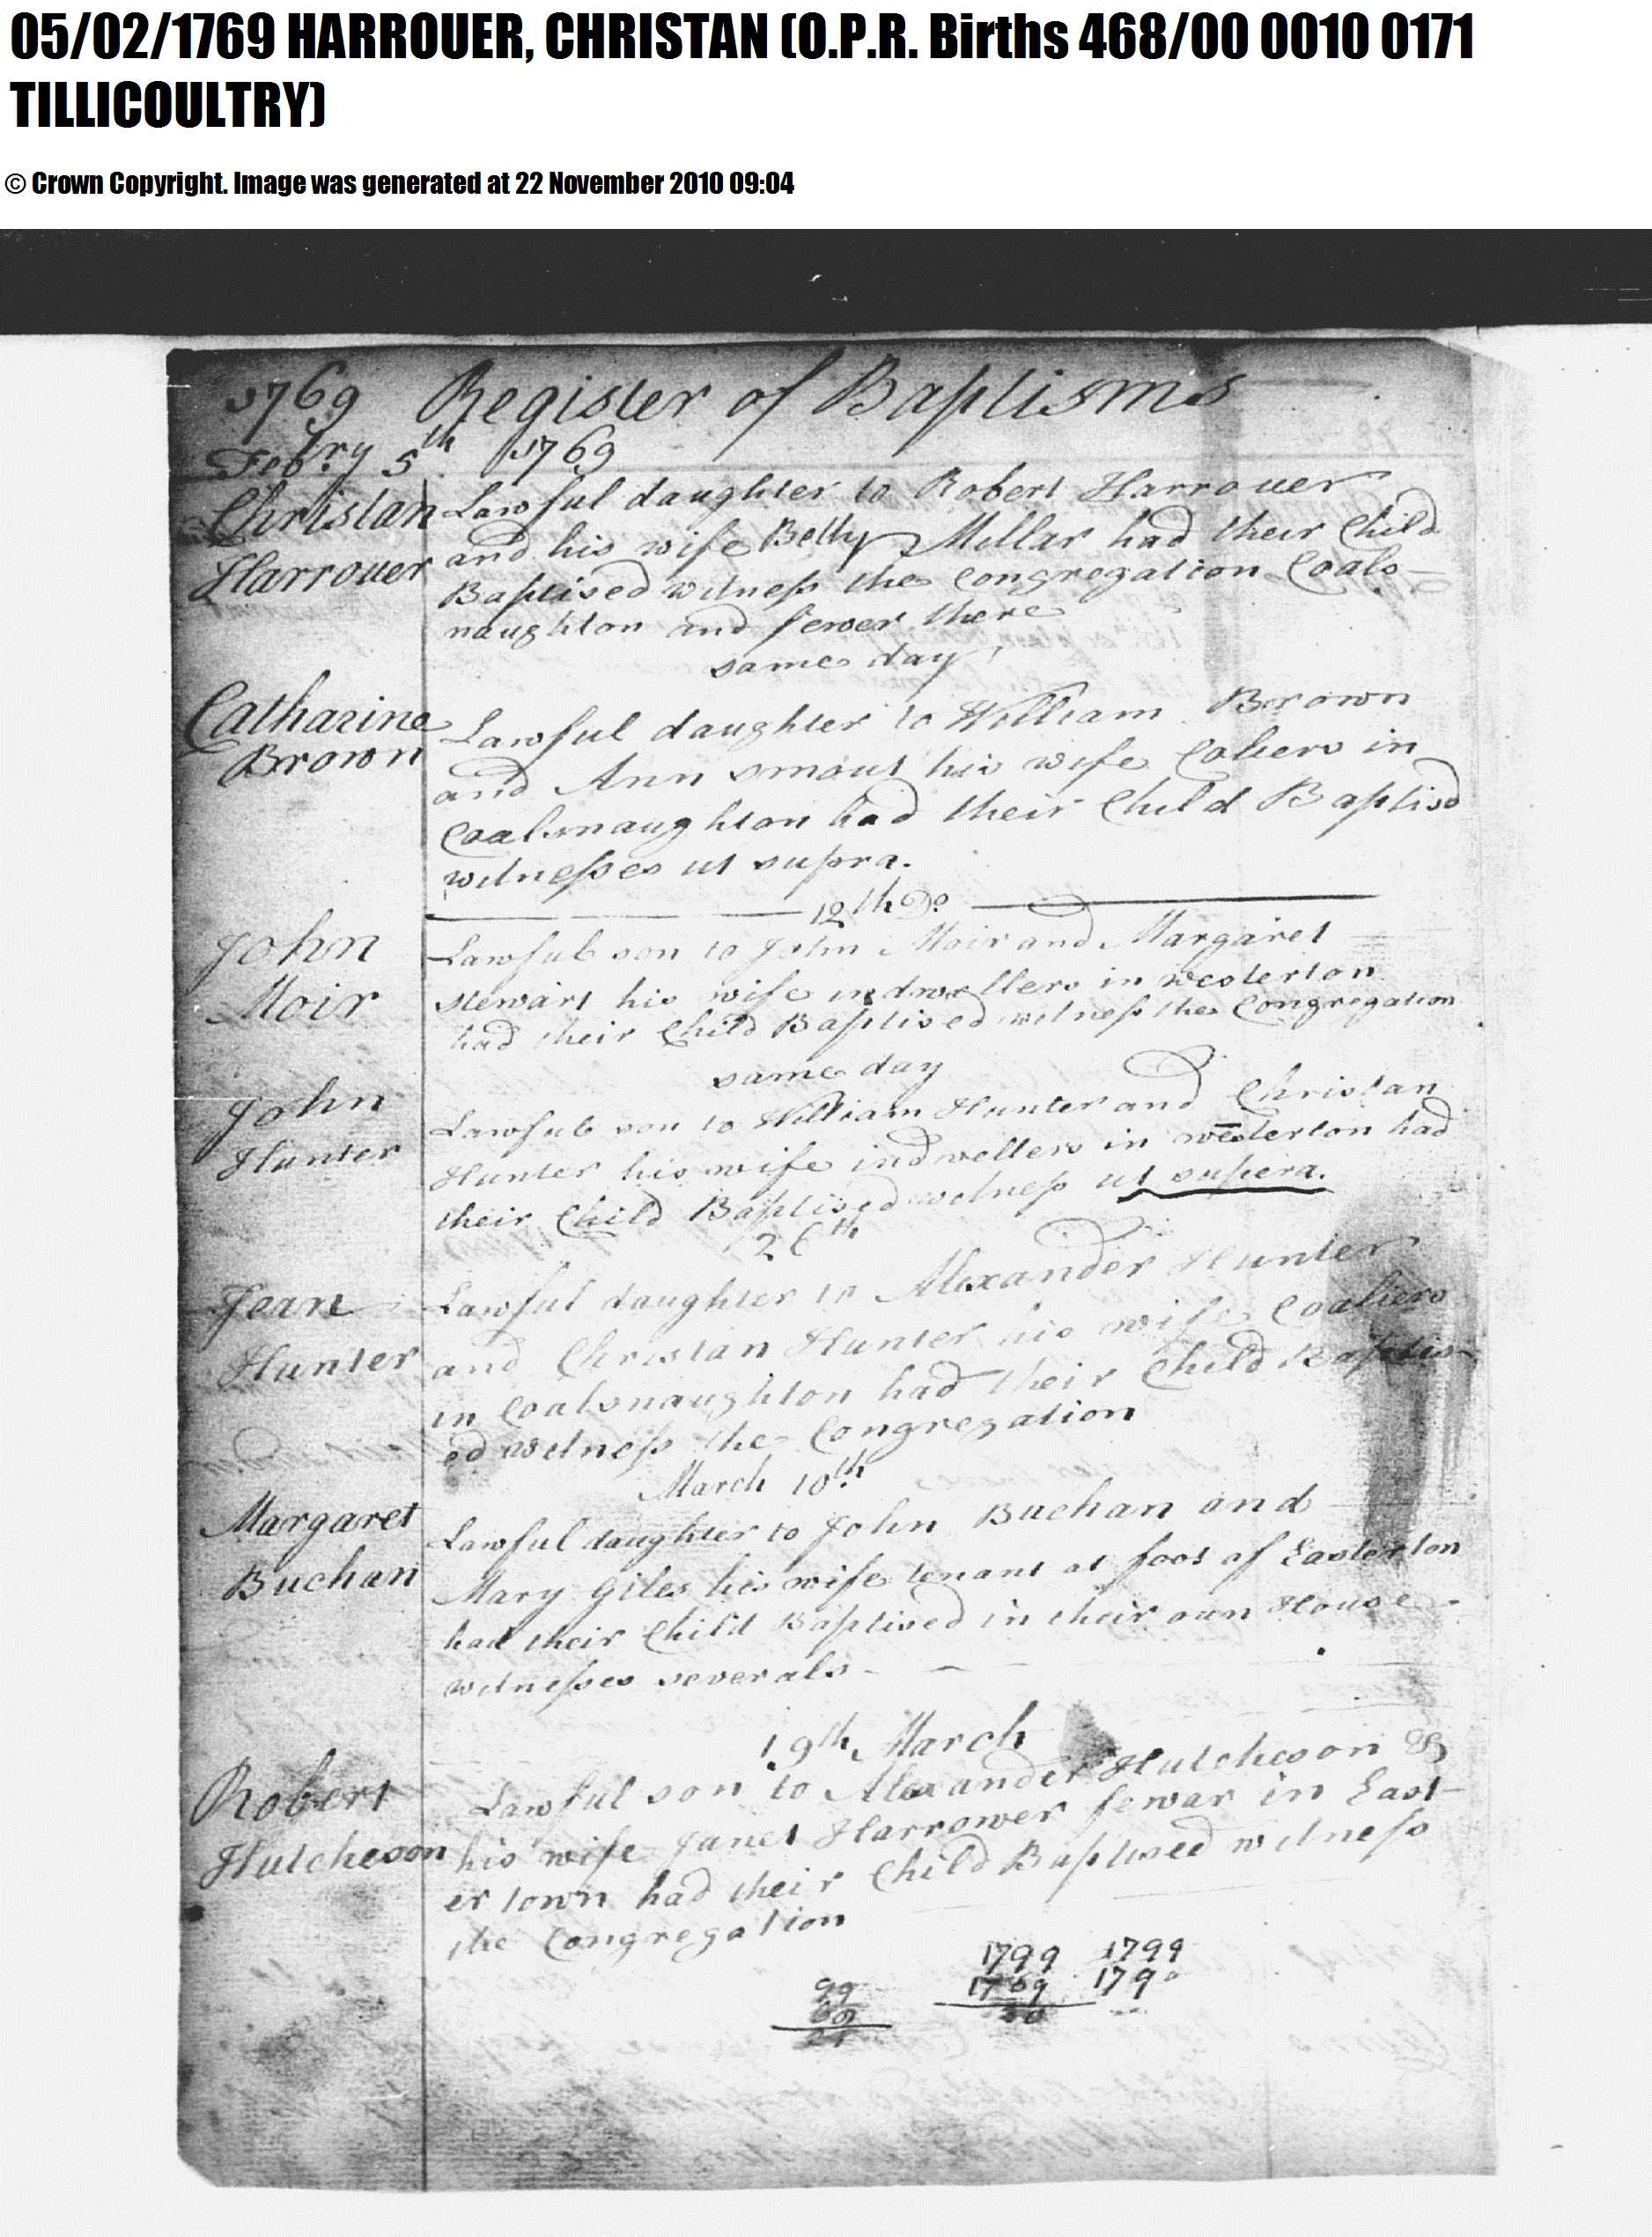 05/02/1769 HARROUER, CHRISTAN (O.P.R. Births 468/00 0010 0171
TILLICOULTRY)
© Crown Copyright. Image was generated at 22 November 2010 09:04
1769 Register of Baptisms
Febry 5th 1769
Christan Lawful daughter to Robert Harrouer
Harrouer and his wife Betty Millar had their Child
Baptised witness the Congregation Coals-
naughton and fewer there
same day
Catharine Lawful daughter to William Brown
Brown and Ann smout his wife Coliers in
Coalsnaughton had their Child Baptisd
witnesses ut supra.
12th Do
John Lawful son to John Moir and Margaret
Moir stewart his wife indwellers in westerton
had their Child Baptised witness the Congregation
same day
John Lawful son to William Hunter and Christan
Hunter Hunter his wife indwellers in westerton had
their Child Baptised witness ut supera.
26th
Jean Lawful daughter to Alexander Hunter
Hunter and Christan Hunter his wife Coaliers
in Coalsnaughton had their Child Baptis-
ed witness the Congregation
March 10th
Margaret Lawful daughter to John Buchan and
Buchan Mary Giles his wife tenant at foot of Easterton
had their Child Baptised in their oun House
witnesses severals
19th March
Robert Lawful son to Alexander Hutcheson &
Hutcheson his wife Janet Harrower fewar in East-
er town had their Child Baptised witness
the Congregation
1799 1799
99 1769 1790
69 30